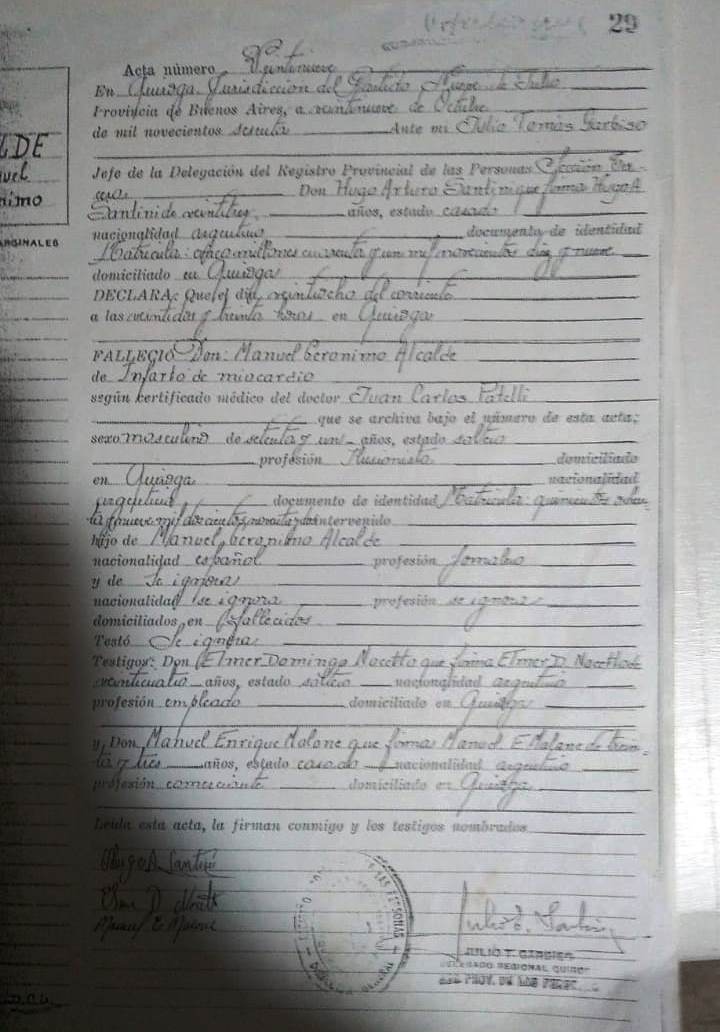 29
Acta número Veintinueve
En Quiroga Jurisdicción del Partido Nueve de Julio
Provincia de Buenos Aires, a veintinueve de Octubre
de mil novecientos sesenta Ante mí Julio Tomás Garbiso
Jefe de la Delegación del Registro Provincial de las Personas Sección
Don Hugo Arturo Santini que firma Hugo A
Santini de veintitres años, estado casado
nacionalidad argentino documento de identidad
Matricula: cinco millones cuarenta y un mil novecientos diez y nueve
domiciliado en Quiroga
DECLARA: Que el día veintiocho del corriente
a las veintidos y treinta horas en Quiroga
FALLECIO Don: Manuel Geronimo Alcalde
de Infarto de miocardio
según certificado médico del doctor Juan Carlos
que se archiva bajo el número de esta acta;
sexo masculino de setenta y un años, estado soltero
profesión Ilusionista domiciliado
en Quiroga nacionalidad
argentina documento de identidad Matricula: quinientos ochen-
ta y nueve mil doscientos noventa y dos intervenido
hijo de Manuel Geronimo Alcalde
nacionalidad español profesión Jornalero
y de Se ignora
nacionalidad se ignora profesión se ignora
domiciliados en fallecidos
Testó Se ignora
Testigos: Don Elmer Domingo Nocetto que firma Elmer D. Nocetto de
veinticuatro años, estado soltero nacionalidad argentino
profesión empleado domiciliado en Quiroga
y Don Manuel Enrique Malone que firma Manuel E Malone de trein-
ta y tres años, estado casado nacionalidad argentino
profesión comerciante domiciliado en Quiroga
Leída esta acta, la firman conmigo y los testigos nombrados
Hugo A Santini
Manuel E Malone
JULIO T. GARBISO
DELEGADO REGIONAL QUIROGA
REG. PROV. DE LAS PERS.
LDE
uel
nimo
ARGINALES